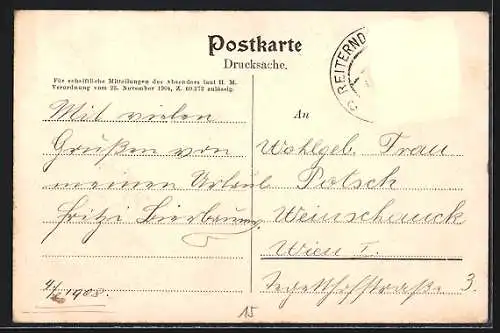 Postkarte
Drucksache.
Für schriftliche Mitteilungen des Absenders laut H. M.
Verordnung vom 22. November 1904, Z. 60.372 zulässig.
REITERND
Mit vielen
Grüßen von
meinen Urlaub
Fritzi Bierbaum
1908.
An
Wohlgeb. Frau
Potsch
Weinschank
Wien I.
3.
15